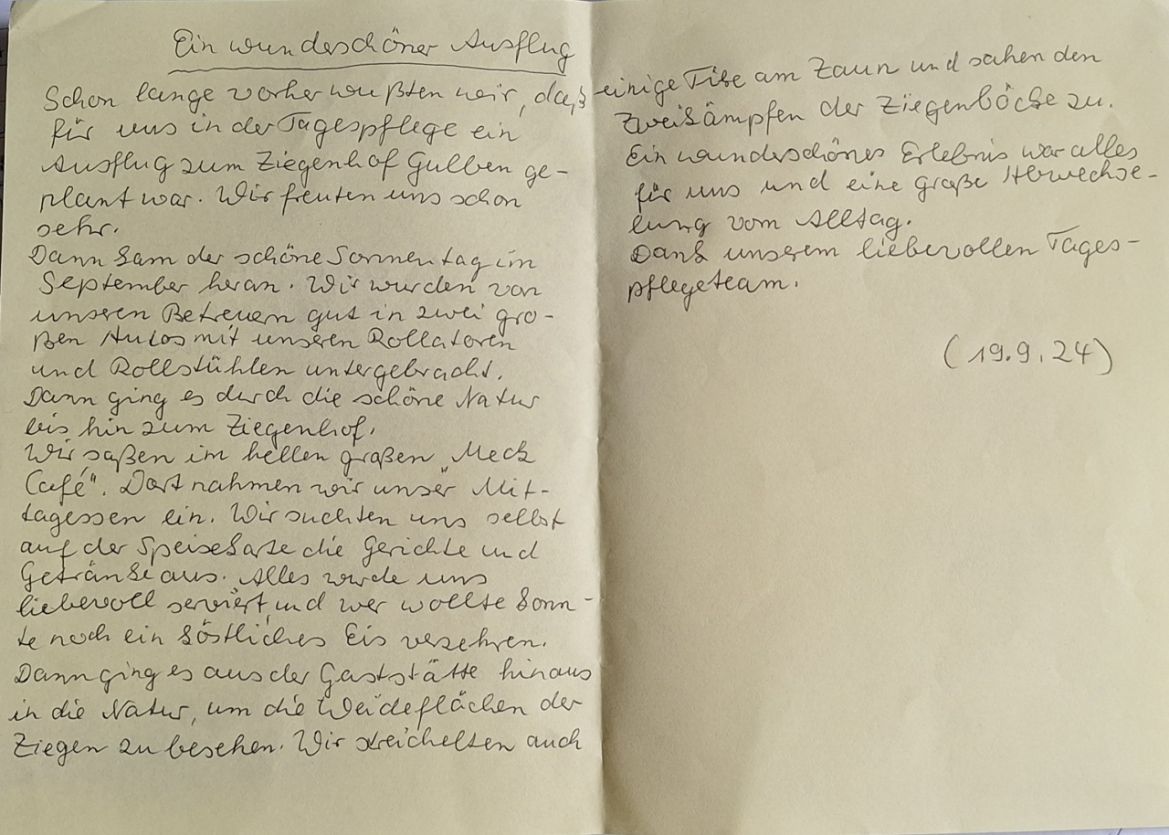 Ein wunderschöner Ausflug
Schon lange vorher wußten wir, daß
für uns in der Tagespflege ein
Ausflug zum Ziegenhof Gulben ge-
plant war. Wir freuten uns schon
sehr.
Dann kam der schöne Sonnentag im
September heran. Wir wurden von
unseren Betreuern gut in zwei gro-
ßen Autos mit unseren Rollatoren
und Rollstühlen untergebracht.
Dann ging es durch die schöne Natur
bis hin zum Ziegenhof.
Wir saßen im hellen großen „Meck
Café“. Dort nahmen wir unser Mit-
tagessen ein. Wir suchten uns selbst
auf der Speisekarte die Gerichte und
Getränke aus. Alles wurde uns
liebevoll serviert und wer wollte konn-
te noch ein köstliches Eis verzehren.
Dann ging es aus der Gaststätte hinaus
in die Natur, um die Weideflächen der
Ziegen zu besehen. Wir streichelten auch
einige Tiere am Zaun und sahen den
Zweikämpfen der Ziegenböcke zu.
Ein wunderschönes Erlebnis war alles
für uns und eine große Abwechse-
lung vom Alltag.
Dank unserem liebevollen Tages-
pflegeteam.
(19.9.24)